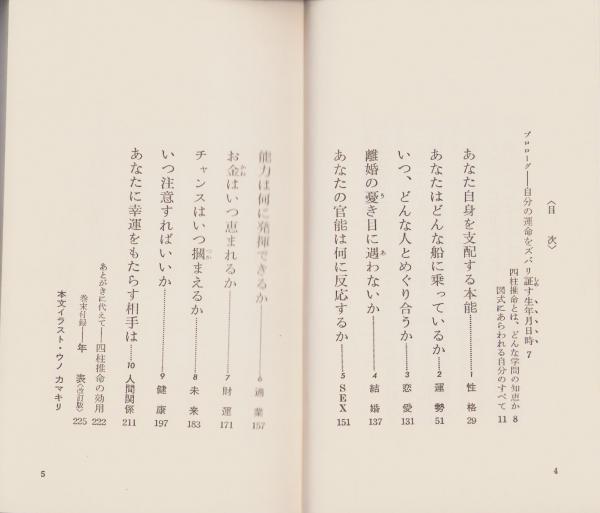 〈目 次〉
プロローグ——自分の運命をズバリ証す生年月日時 7
四柱推命とは、どんな学問の知恵か 8
図式にあらわれる自分のすべて 11
あなた自身を支配する本能………1 性 格 29
あなたはどんな船に乗っているか………2 運 勢 51
いつ、どんな人とめぐり合うか………3 恋 愛 131
離婚の憂き目に遇わないか………4 結 婚 137
あなたの官能は何に反応するか………5 SEX 151
能力は何に発揮できるか………6 適 業 157
お金はいつ恵まれるか………7 財 運 171
チャンスはいつ摑まえるか………8 未 来 183
いつ注意すればいいか………9 健 康 197
あなたに幸運をもたらす相手は………10 人間関係 211
あとがきに代えて——四柱推命の効用 222
巻末付録——年 表〈改訂版〉 225
本文イラスト・ウノ カマキリ
4
5